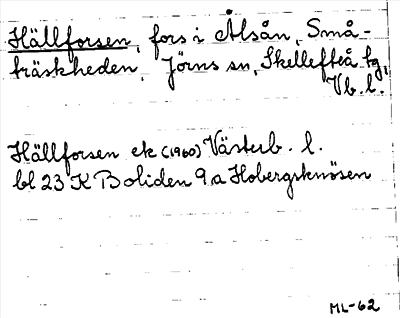 Hällforsen, fors i Ålsån, Små-
träskheden, Jörns sn, Skellefteå tg,
Vb. l.
Hällforsen ek (1960) Västerb. l.
bl 23 K Boliden 9 a Hobergsknösen
ML-62